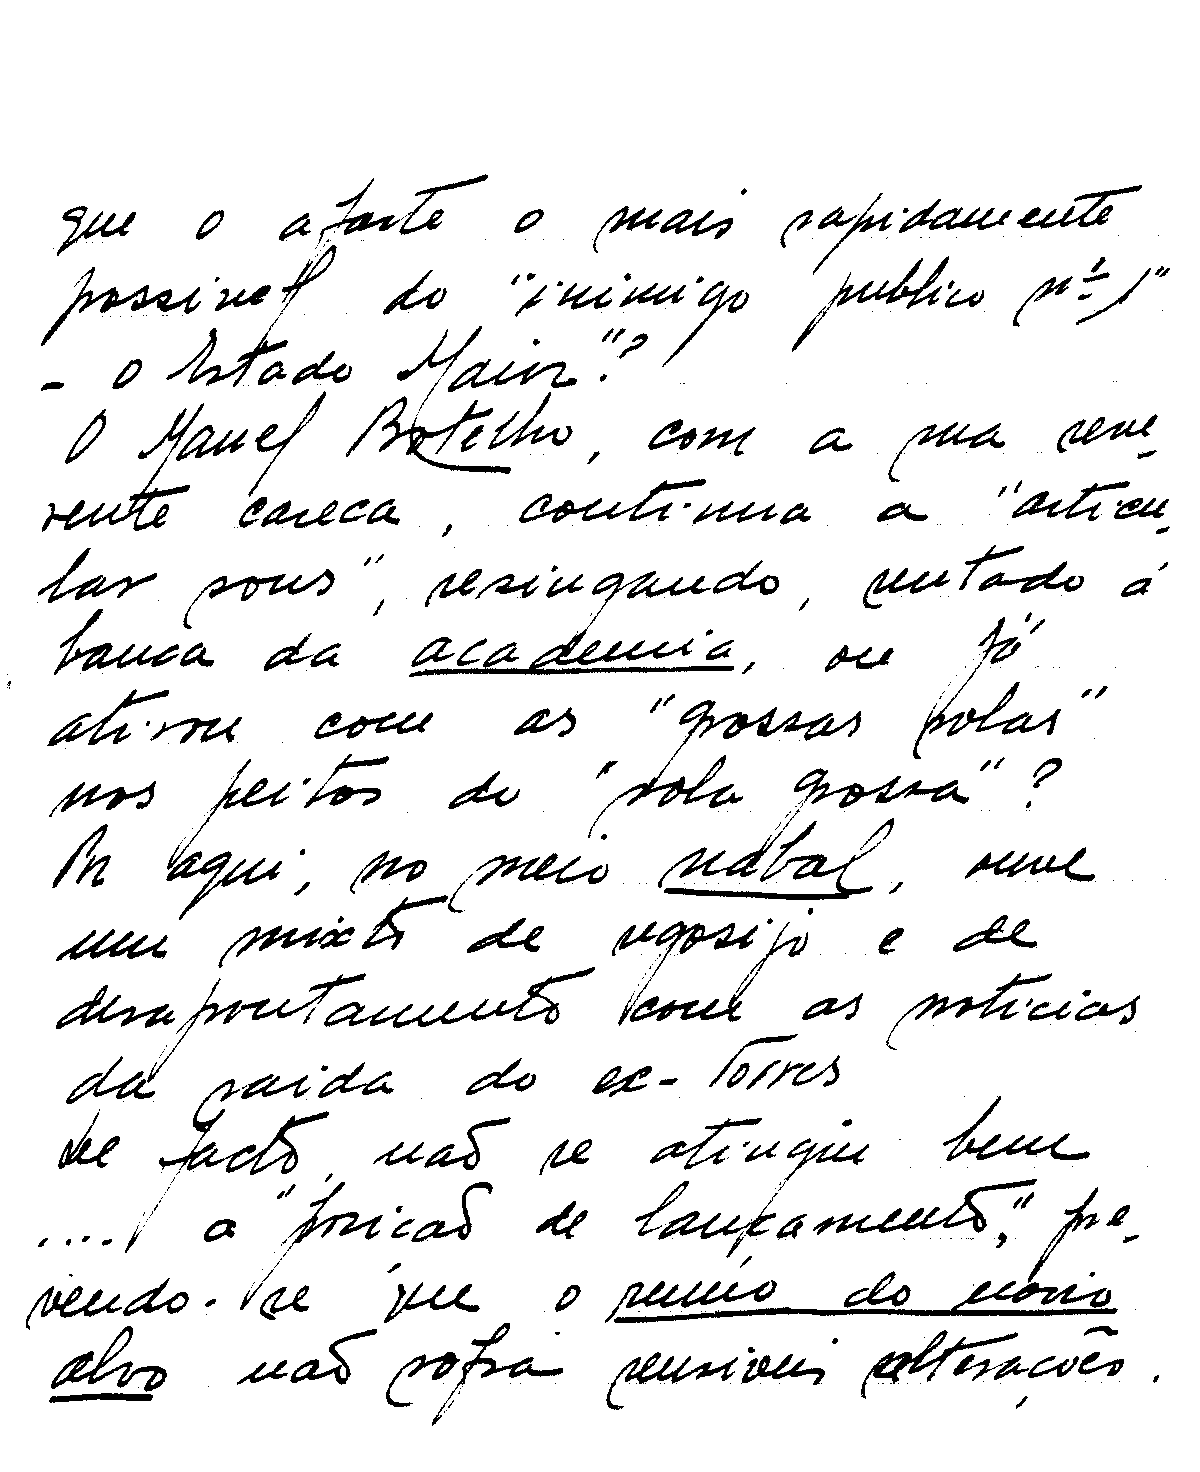 que o afaste o mais rapidamente
possivel do "inimigo publico nº 1"
- o Estado Maior"?
O Manel Botelho, com a sua reve-
rente careca, continua a "articu-
lar sons", resingando, sentado á
banca da academia, ou já
atirou com as "grossas solas"
nos peitos do "sola grossa"?
Por aqui, no meio nabal, houve
um mixto de regosijo e de
desapontamento com as noticias
da saida do ex-Torres
De facto, naõ se atingiu bem
.... a "posicaõ de lançamento," pre-
vendo-se que o rumo do novo
alvo naõ sofra sensiveis alterações.